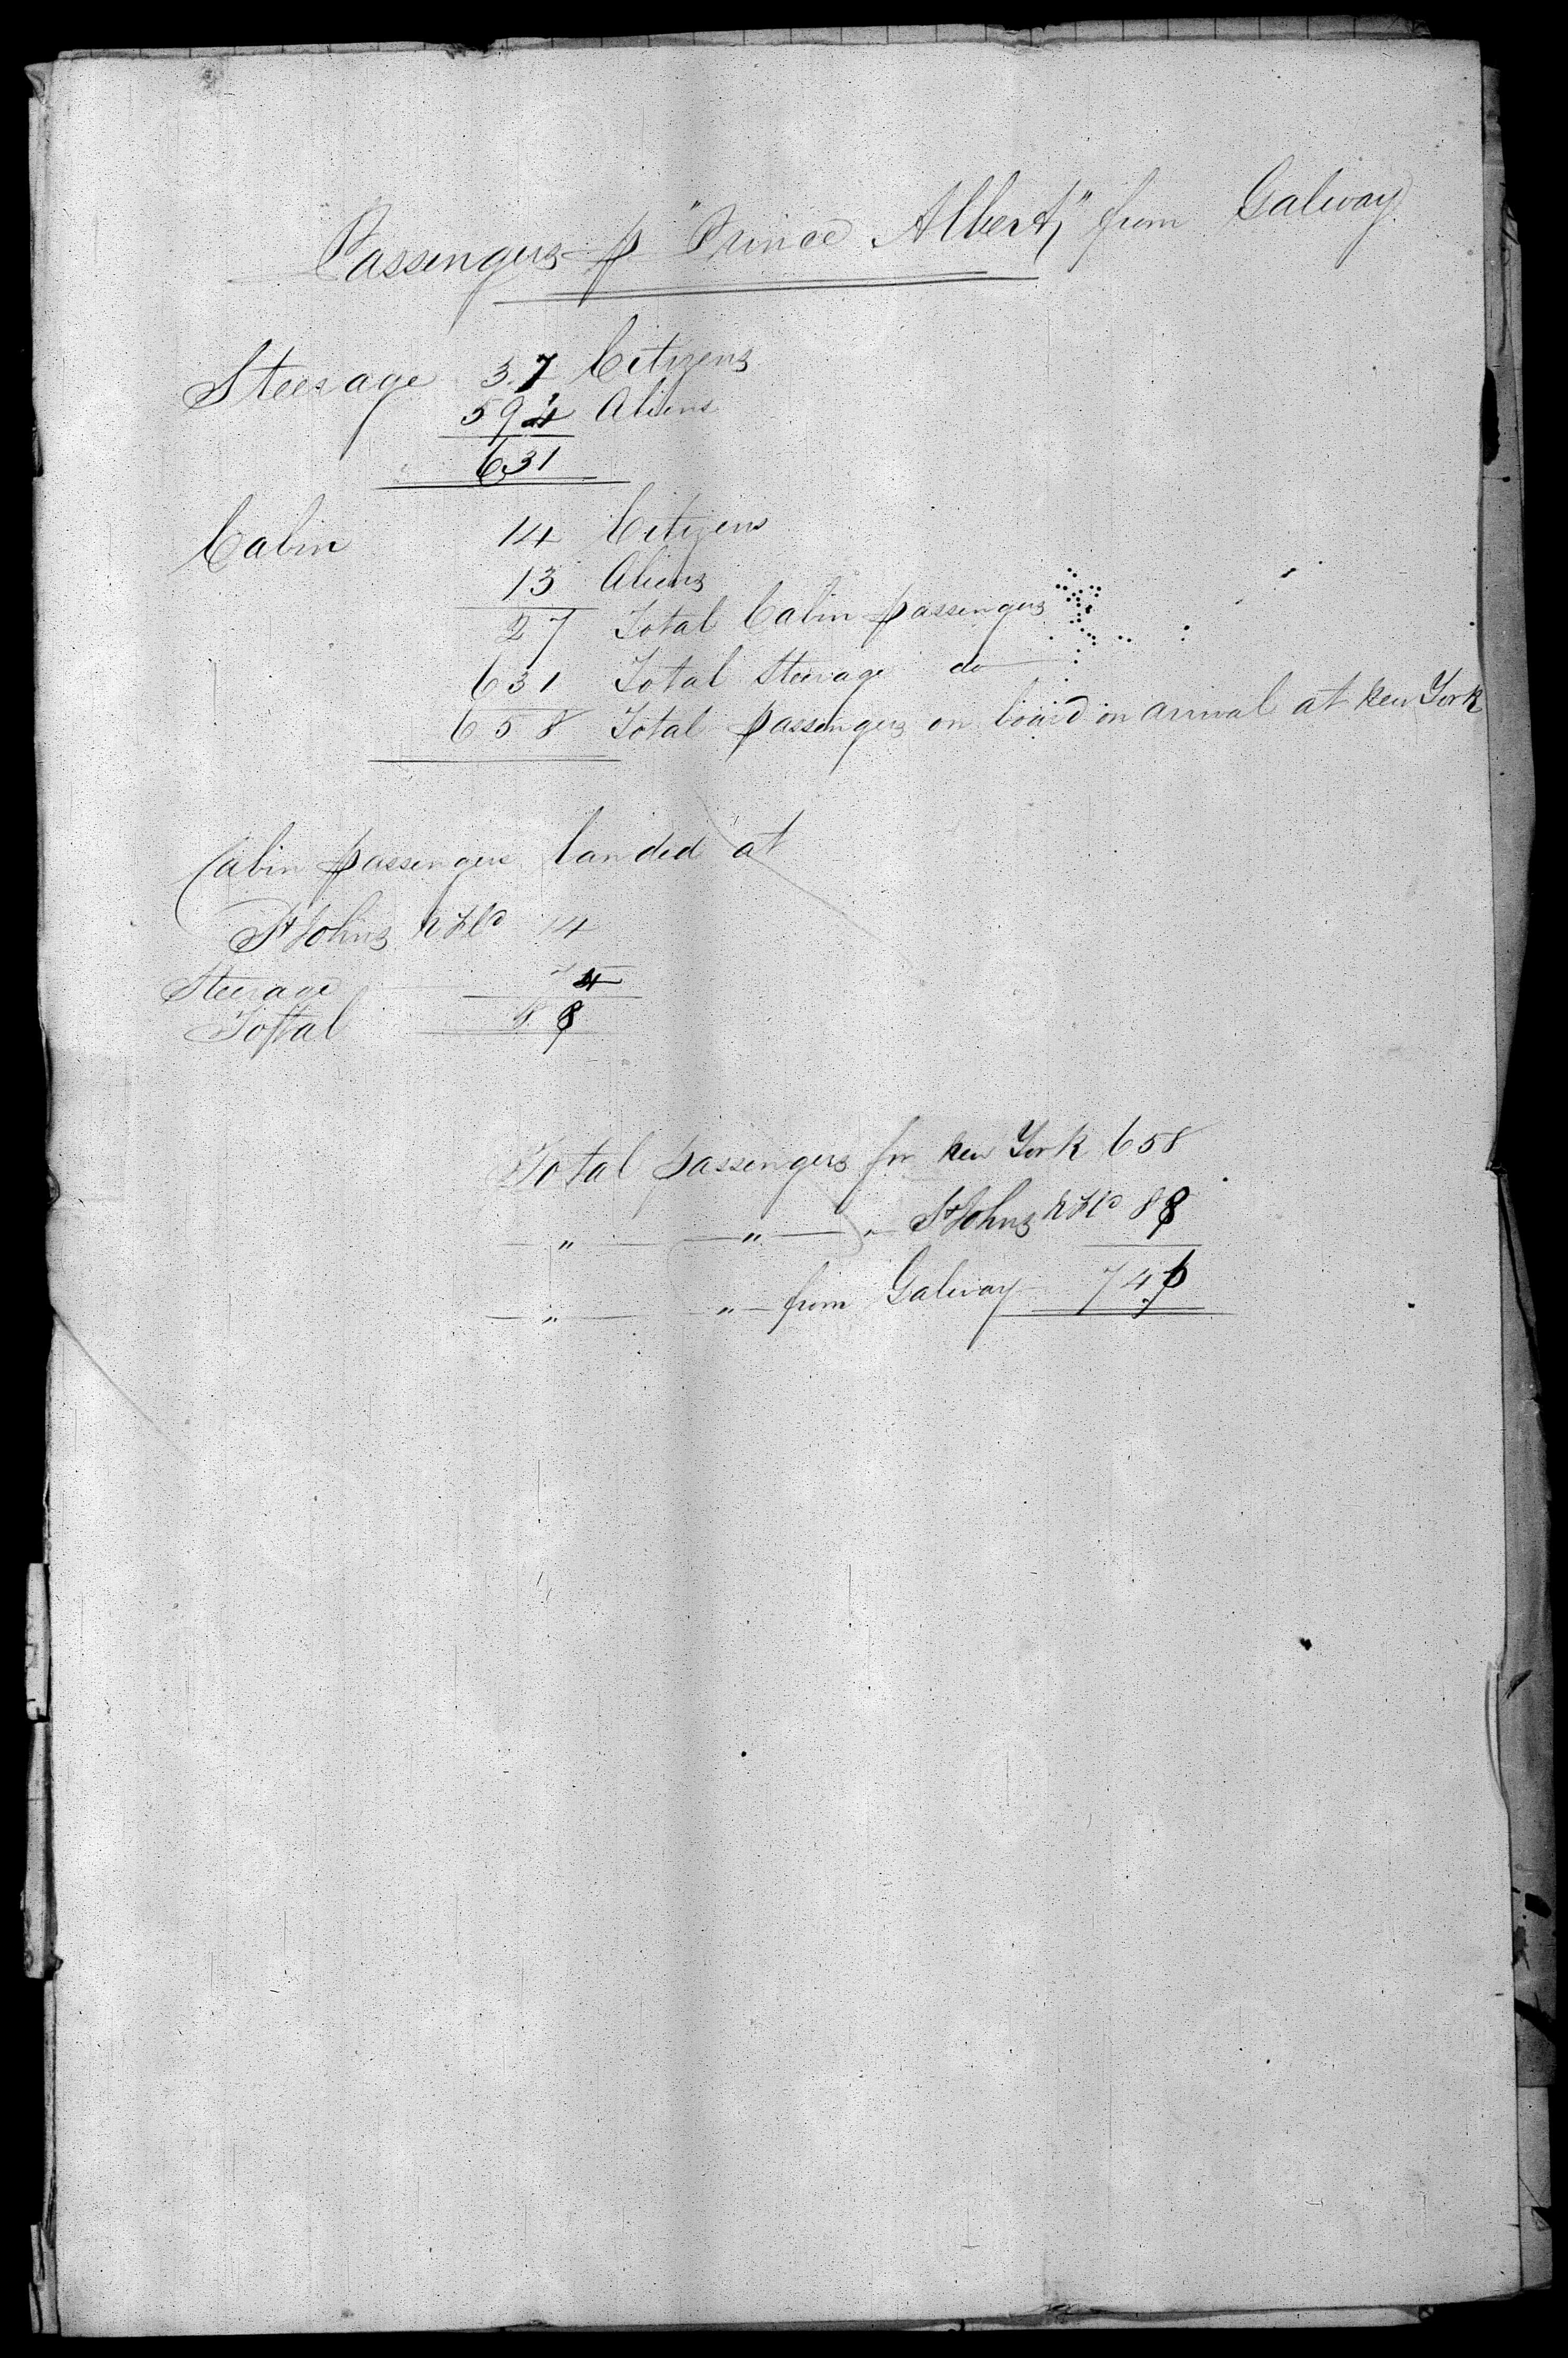 Passengers p "Prince Albert," from Galway
Steerage 37 Citizens
594 Aliens
631
Cabin 14 Citizens
13 Aliens
27 Total Cabin passengers
631 Total Steerage do
658 Total passengers on board on arrival at New York
Cabin passengers landed at
St Johns N Fld 14
Steerage 74
Total 88
Total passengers for New York 658
— " — — " — " — St Johns N Fld 88
— " — — " — from Galway 746